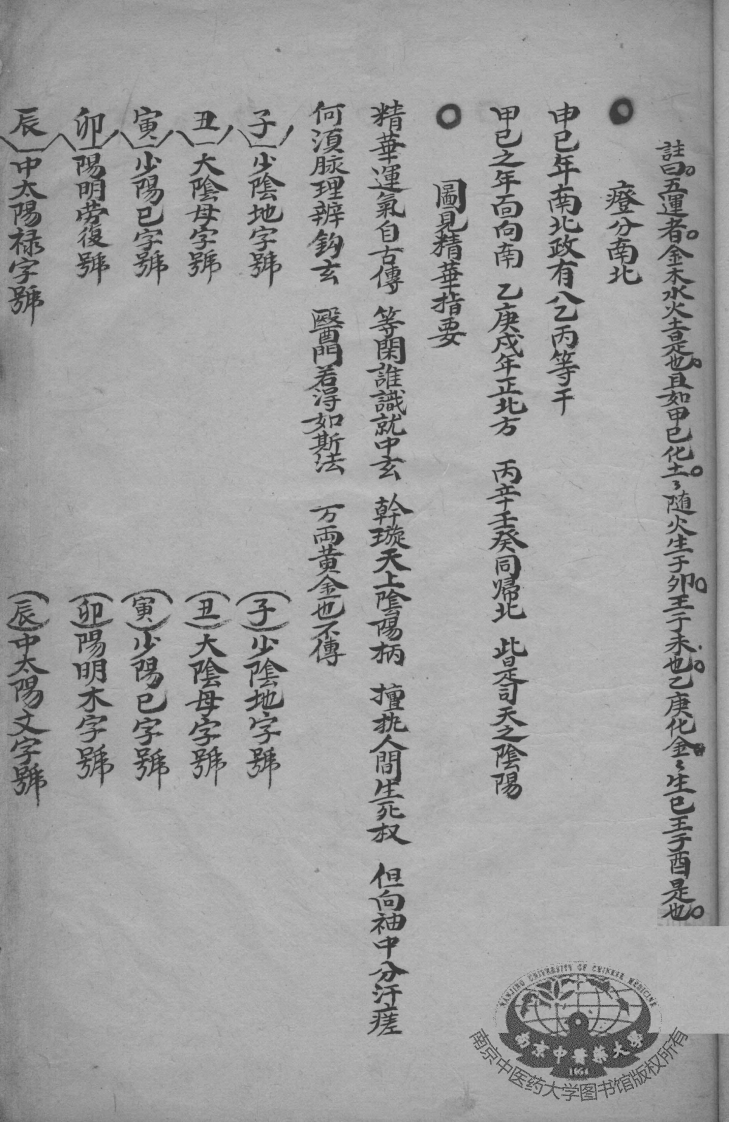 註曰五運者金木水火土者是也且如甲巳化土々随火生于卯王于未也乙庚化金々生巳王于酉是也
癔分南北
申巳年南北政有八乙丙等干
甲巳之年面向南 乙庚戌年正北方 丙辛壬癸同歸北 此是司天之陰陽
圖見精華指要
精華運氣自古傳 等閑誰識就中玄 幹璇天上陰陽柄 擅挑人間生死权 但向袖中分汗瘥
何湏脉理辨鈎玄 醫門若淂如斯法 万両黄金也不傳
子 少陰地字號 (子)少陰地字號
丑 大陰母字號 (丑)大陰母字號
寅 少陽巳字號 (寅)少陽巳字號
卯 陽明劳復號 (卯)陽明木字號
辰 中太陽禄字號 (辰)中太陽文字號
NANJING UNIVERSITY OF CHINESE MEDICINE
南京中醫藥大學
1954
南京中医药大学图书馆版权所有